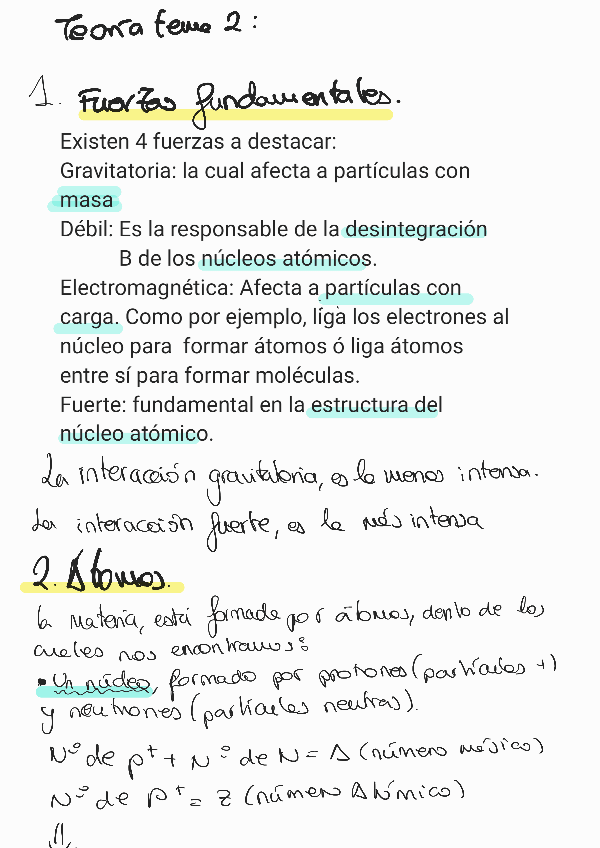 Teoría tema 2:
1. Fuerzas fundamentales.
Existen 4 fuerzas a destacar:
Gravitatoria: la cual afecta a partículas con
masa
Débil: Es la responsable de la desintegración
B de los núcleos atómicos.
Electromagnética: Afecta a partículas con
carga. Como por ejemplo, líga los electrones al
núcleo para formar átomos ó liga átomos
entre sí para formar moléculas.
Fuerte: fundamental en la estructura del
núcleo atómico.
La interacción gravitatoria, es la menos intensa.
La interacción fuerte, es la más intensa
2. Átomos.
la materia, está formada por átomos, dentro de los
cuales nos encontramos:
• Un núcleo, formado por protones (partículas +)
y neutrones (partículas neutras).
Nº de p⁺ + Nº de N = A (número másico)
Nº de p⁺ = Z (número Atómico)
⇓